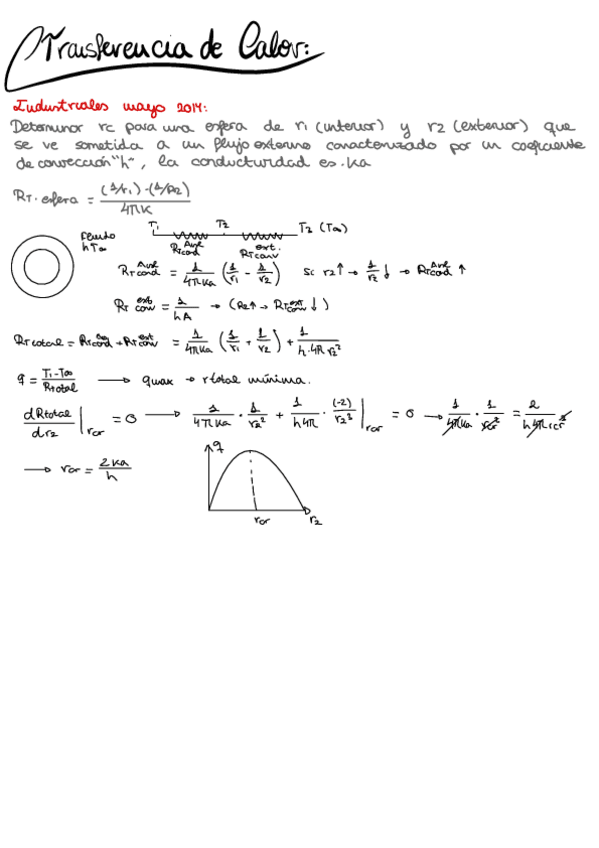 Transferencia de Calor:
Industriales mayo 2014:
Determinar rc para una esfera de r1 (interior) y r2 (exterior) que
se ve sometida a un flujo externo caracterizado por un coeficiente
de convección "h", la conductividad es ka
RT. esfera = (1/r1)-(1/r2) / 4πK
T1 T2 T3 (T∞)
fluido
h T∞
RT cond Aisl RT conv ext.
RT cond Aisl = 1/4πka (1/r1 - 1/r2) Si r2↑ → 1/r2 ↓ → RT cond Aisl ↑
RT conv ext = 1/hA → (R2↑ → RT conv ext ↓)
RT total = RT cond + RT conv ext = 1/4πka (1/r1 + 1/r2) + 1/h·4π r2²
q = T1-T∞ / RTtotal → qmax → rtotal mínima.
dRtotal/dr2 |rcr = 0 → 1/4πka · 1/r2² + 1/h4π · (-2)/r2³ |rcr = 0 → 1/4πka · 1/rcr² = 2/h4πrcr³
→ rcr = 2ka/h
q
rcr r2